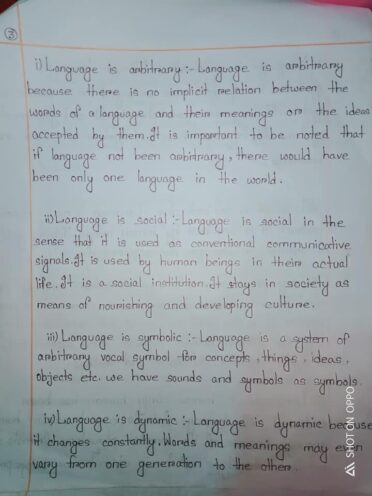 i) Language is arbitrary :- Language is arbitrary
because there is no implicit relation between the
words of a language and their meanings or the ideas
accepted by them. It is important to be noted that
if language not been arbitrary, there would have
been only one language in the world.
ii) Language is social :- Language is social in the
sense that it is used as conventional communicative
signals. It is used by human beings in their actual
life. It is a social institution. It stays in society as
means of nourishing and developing culture.
iii) Language is symbolic :- Language is a system of
arbitrary vocal symbol for concepts, things, ideas,
objects etc. we have sounds and symbols as symbols.
iv) Language is dynamic :- Language is dynamic because
it changes constantly. Words and meanings may even
vary from one generation to the other.
SHOT ON OPPO